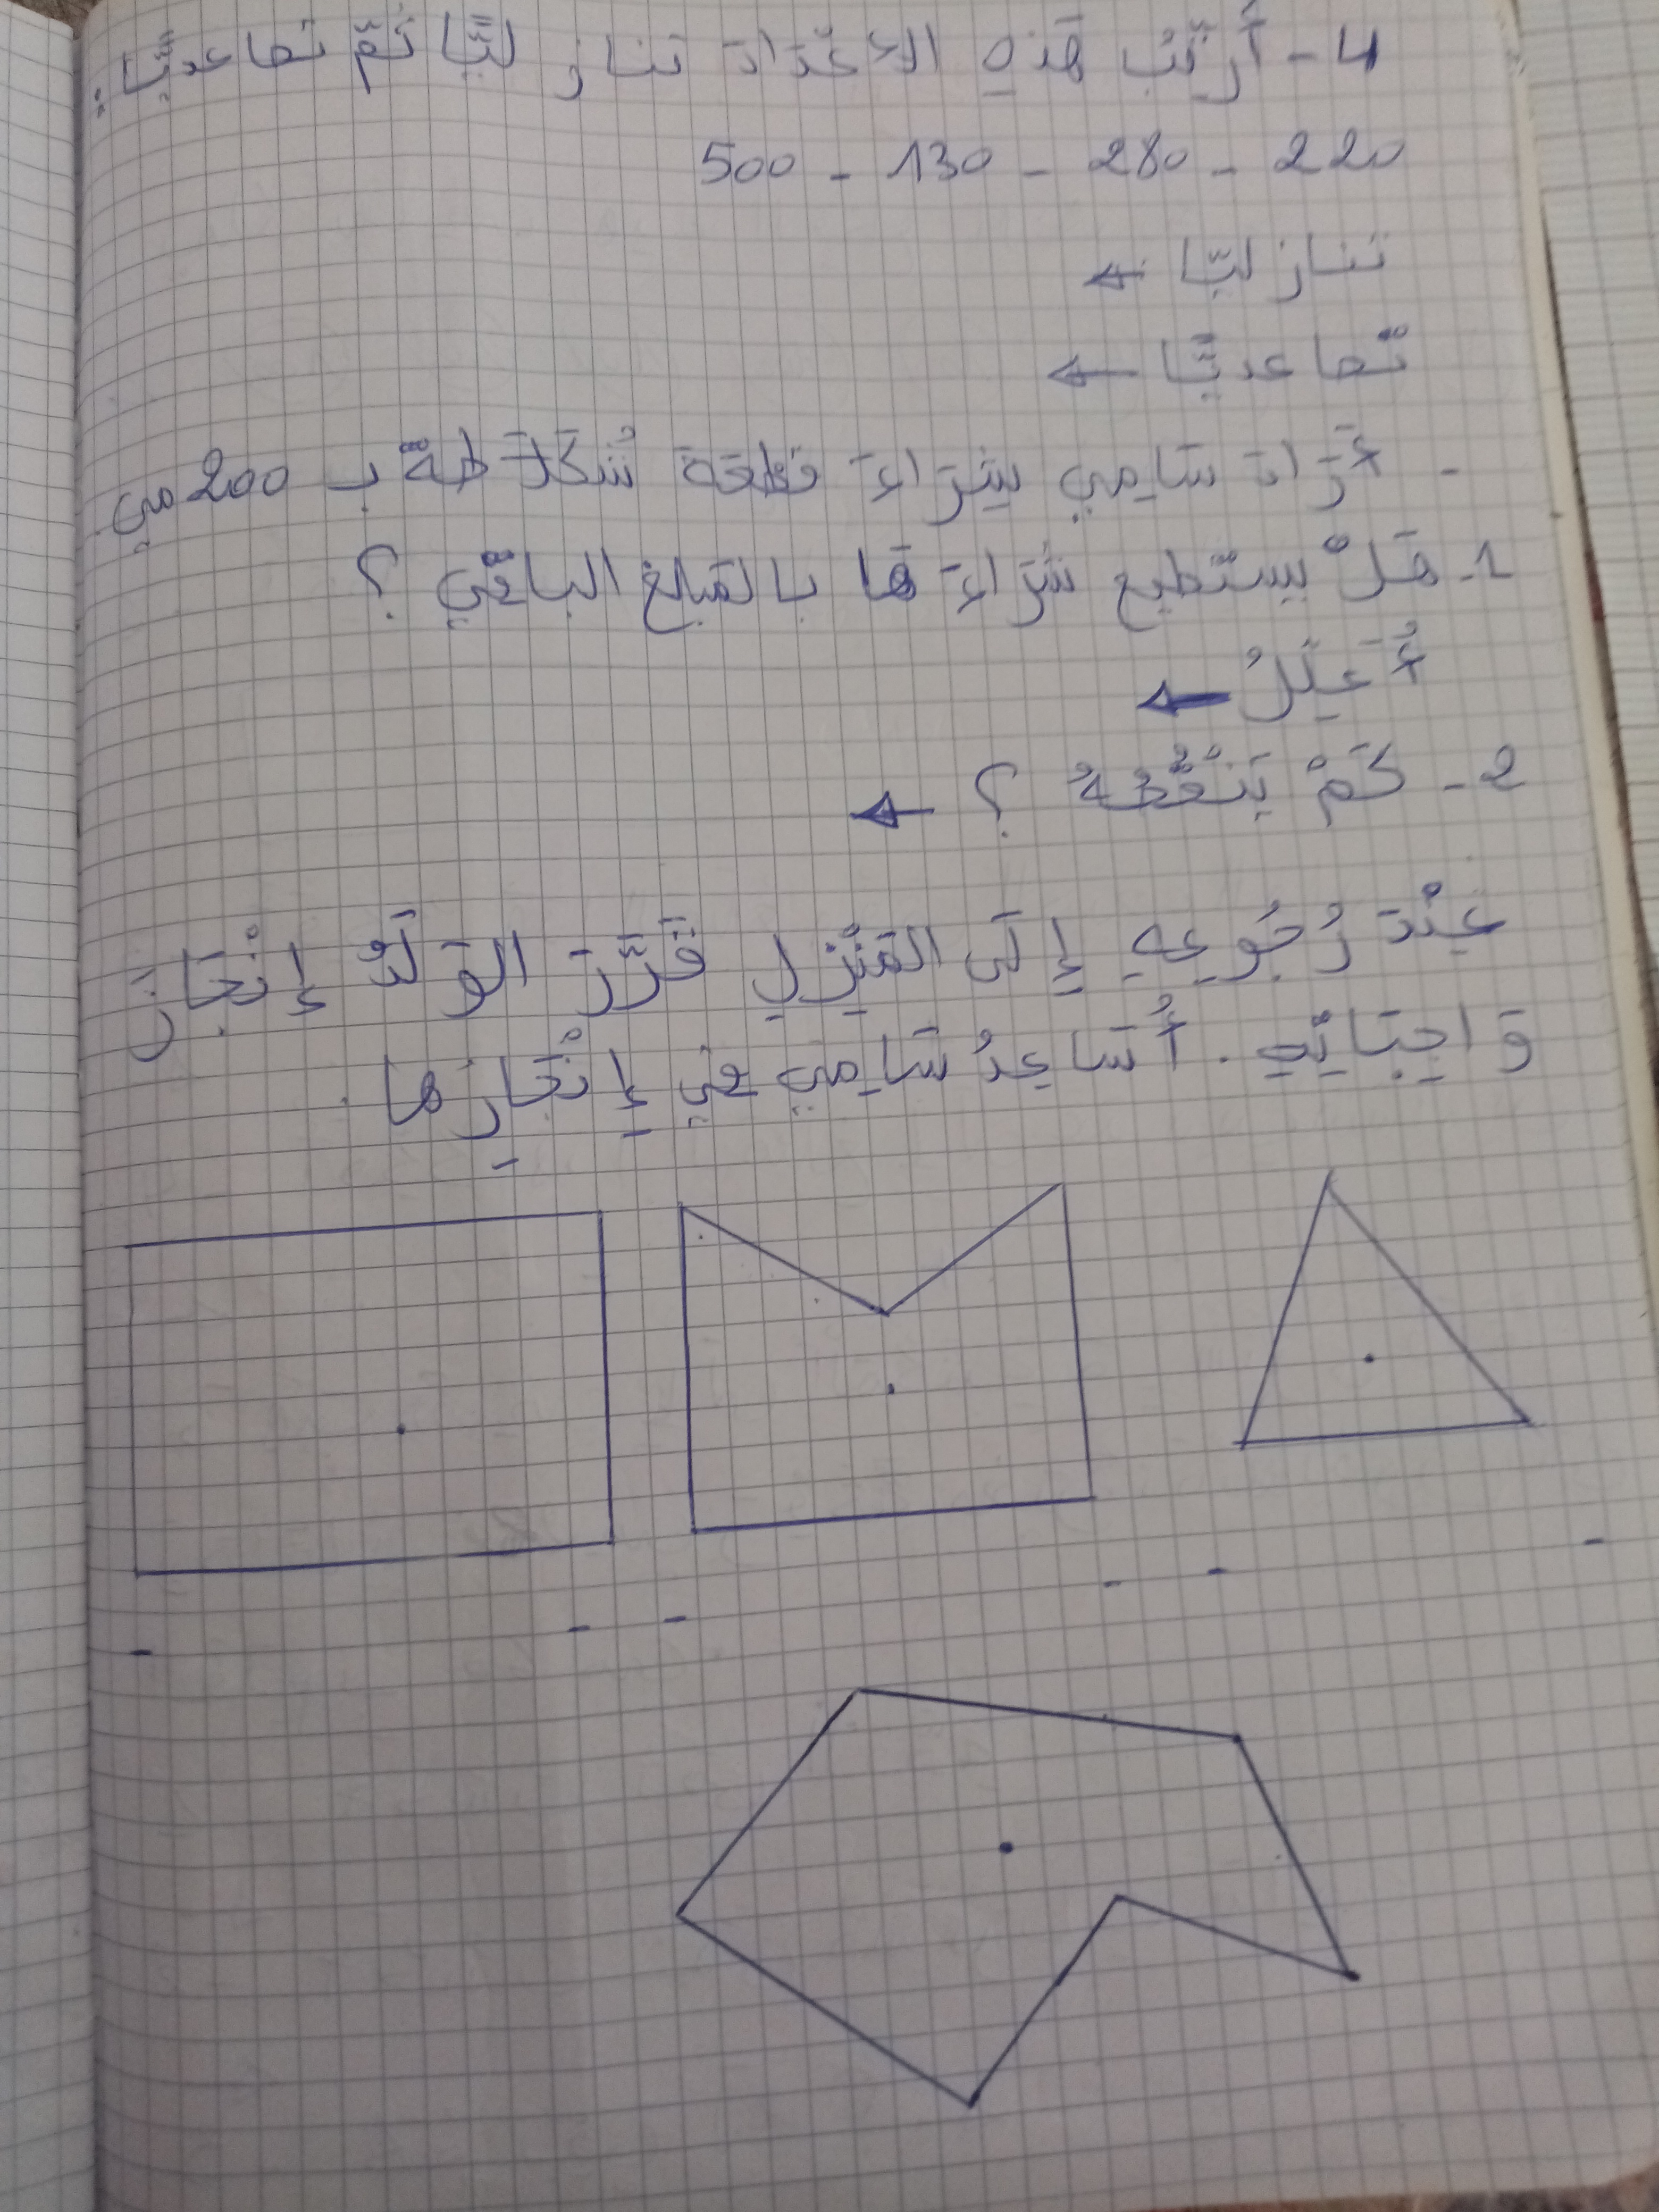 4 - أُرَتِّبُ هَذِهِ الأعْدَادَ تنازليًّا ثُمَّ تصاعديًّا :
500 - 130 - 280 - 220
تنازليّا ←
تصاعديًّا ←
- أَرَادَ سَامِي شِرَاءَ قطعَةَ شُكَلَاطَةٌ بـ 200 مي
1 - هَلْ يستطيع شِرَاءَهَا بالمَبلغ الباقِي ؟
أُعَلِّلُ ←
2 - كَمْ يَنْقُصُهُ ؟ ←
عِنْدَ رُجُوعِهِ إِلَى المَنْزِلِ قَرَّرَ الوَلَدُ إِنْجَازَ
وَاجِبَاتِهِ . أُسَاعِدُ سَامِي فِي إِنْجَازِها .